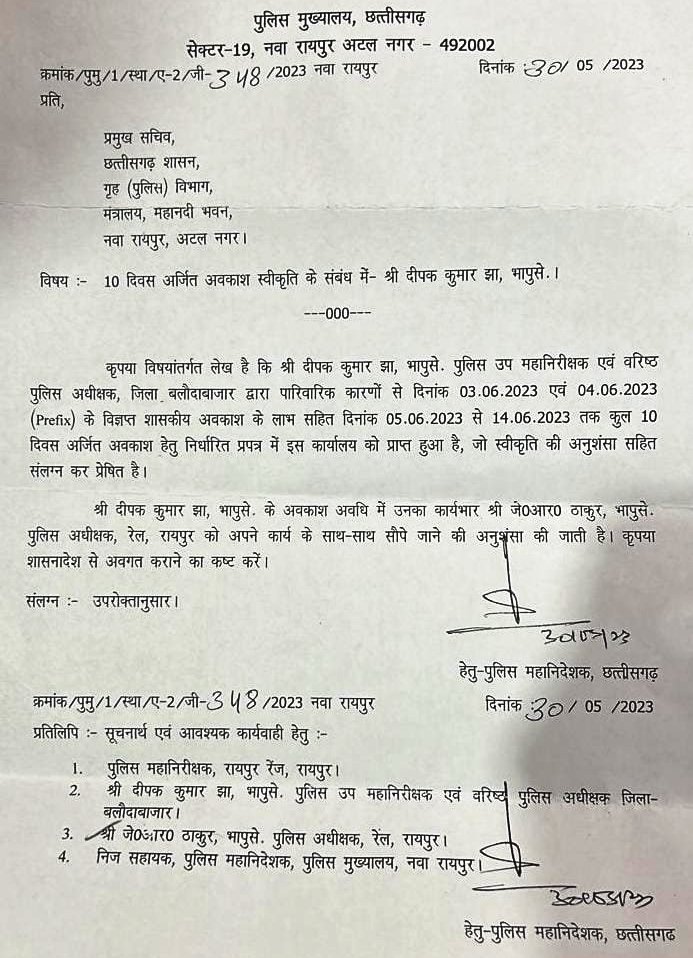 पुलिस मुख्यालय, छत्तीसगढ़
सेक्टर-19, नवा रायपुर अटल नगर - 492002
क्रमांक/पुमु/1/स्था/ए-2/जी-348/2023 नवा रायपुर दिनांक :30/ 05 /2023
प्रति,
प्रमुख सचिव,
छत्तीसगढ़ शासन,
गृह (पुलिस) विभाग,
मंत्रालय, महानदी भवन,
नवा रायपुर, अटल नगर।
विषय :- 10 दिवस अर्जित अवकाश स्वीकृति के संबंध में- श्री दीपक कुमार झा, भापुसे.।
---000---
कृपया विषयांतर्गत लेख है कि श्री दीपक कुमार झा, भापुसे. पुलिस उप महानिरीक्षक एवं वरिष्ठ
पुलिस अधीक्षक, जिला बलौदाबाजार द्वारा पारिवारिक कारणों से दिनांक 03.06.2023 एवं 04.06.2023
(Prefix) के विज्ञप्त शासकीय अवकाश के लाभ सहित दिनांक 05.06.2023 से 14.06.2023 तक कुल 10
दिवस अर्जित अवकाश हेतु निर्धारित प्रपत्र में इस कार्यालय को प्राप्त हुआ है, जो स्वीकृति की अनुशंसा सहित
संलग्न कर प्रेषित है।
श्री दीपक कुमार झा, भापुसे. के अवकाश अवधि में उनका कार्यभार श्री जे0आर0 ठाकुर, भापुसे.
पुलिस अधीक्षक, रेल, रायपुर को अपने कार्य के साथ-साथ सौपे जाने की अनुशंसा की जाती है। कृपया
शासनादेश से अवगत कराने का कष्ट करें।
संलग्न :- उपरोक्तानुसार।
हेतु-पुलिस महानिदेशक, छत्तीसगढ़
क्रमांक/पुमु/1/स्था/ए-2/जी-348/2023 नवा रायपुर दिनांक :30/ 05 /2023
प्रतिलिपि :- सूचनार्थ एवं आवश्यक कार्यवाही हेतु :-
1. पुलिस महानिरीक्षक, रायपुर रेंज, रायपुर।
2. श्री दीपक कुमार झा, भापुसे. पुलिस उप महानिरीक्षक एवं वरिष्ठ पुलिस अधीक्षक जिला-
बलौदाबाजार।
3. श्री जे0आर0 ठाकुर, भापुसे. पुलिस अधीक्षक, रेल, रायपुर।
4. निज सहायक, पुलिस महानिदेशक, पुलिस मुख्यालय, नवा रायपुर।
हेतु-पुलिस महानिदेशक, छत्तीसगढ